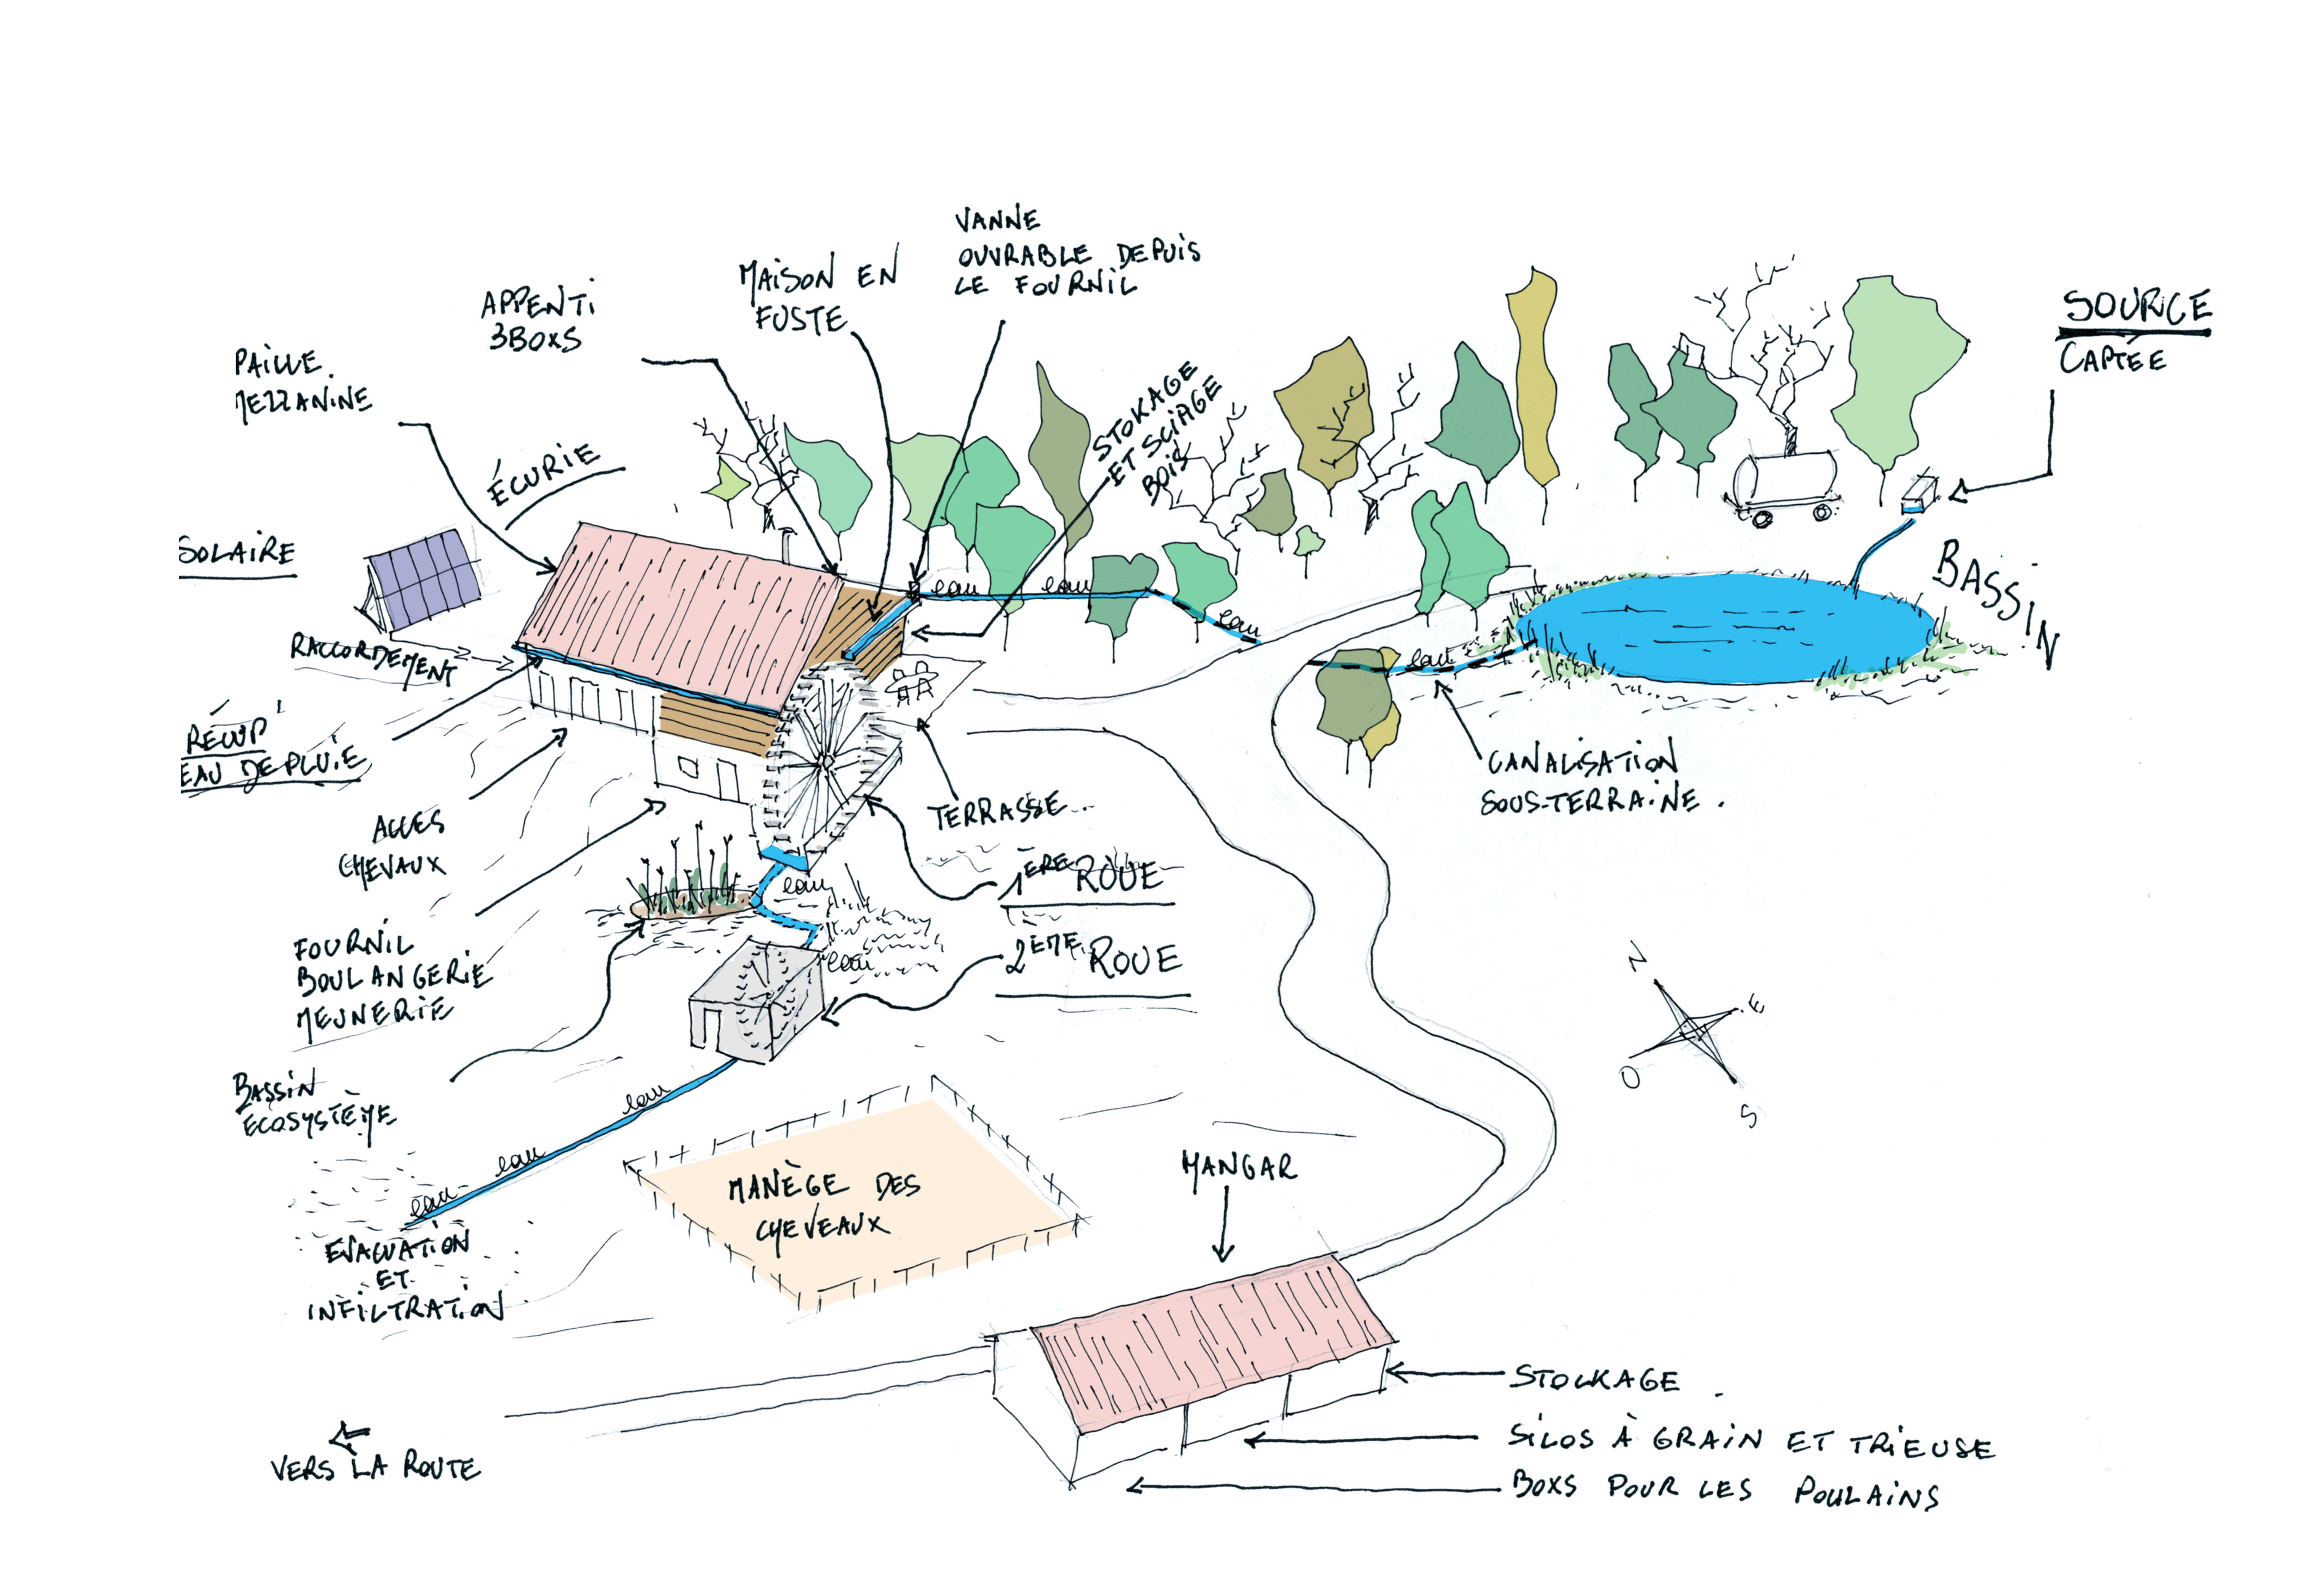 VANNE
OUVRABLE DEPUIS
LE FOURNIL
MAISON EN
FUSTE
APPENTI
3 BOXS
PAILLE
MEZZANINE
ÉCURIE
STOKAGE
ET SCIAGE
BOIS
SOURCE
CAPTÉE
SOLAIRE
RACCORDEMENT
RÉCUP'
EAU DE PLUIE
eau
eau
eau
eau
BASSIN
CANALISATION
SOUS-TERRAINE.
ACCES
CHEVAUX
TERRASSE
1ÈRE ROUE
2ÈME ROUE
eau
eau
FOURNIL
BOULANGERIE
MEUNERIE
BASSIN
ECOSYSTÈME
N
E
O
S
eau
eau
eau
EVACUATION
ET
INFILTRATION
MANÈGE DES
CHEVEAUX
HANGAR
STOCKAGE
SILOS À GRAIN ET TRIEUSE
BOXS POUR LES POULAINS
VERS LA ROUTE